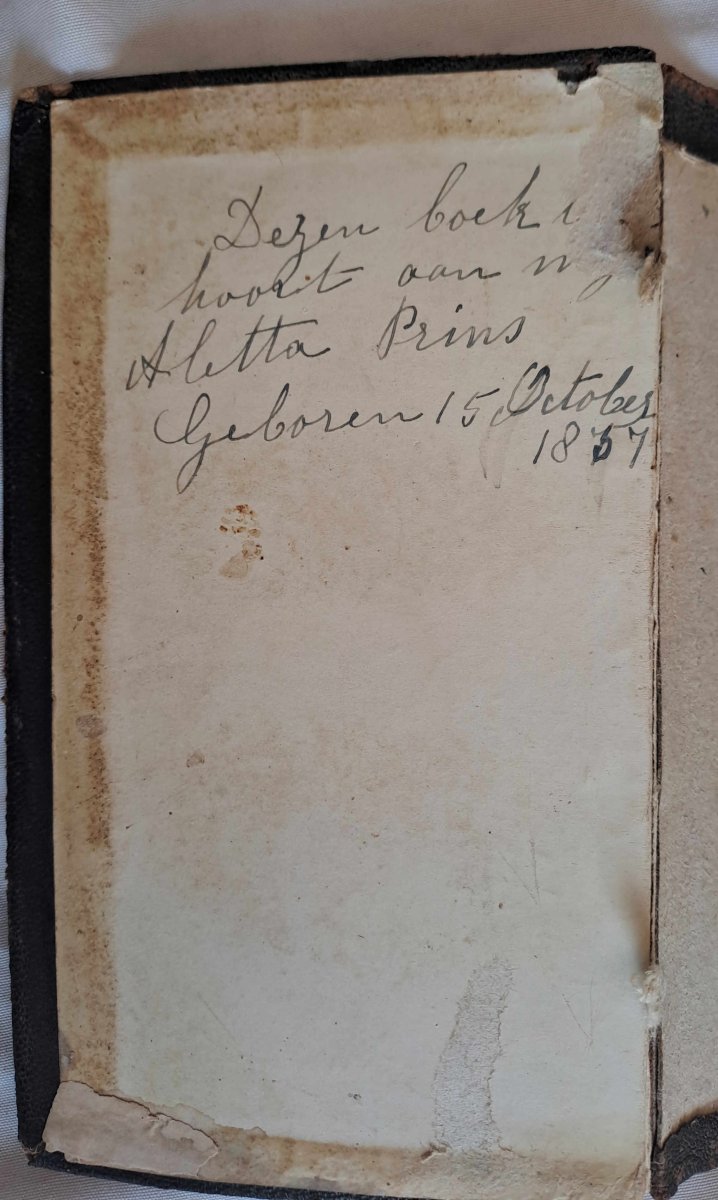 Dezen boek
hoort aan
Aletta Prins
Geboren 15 October